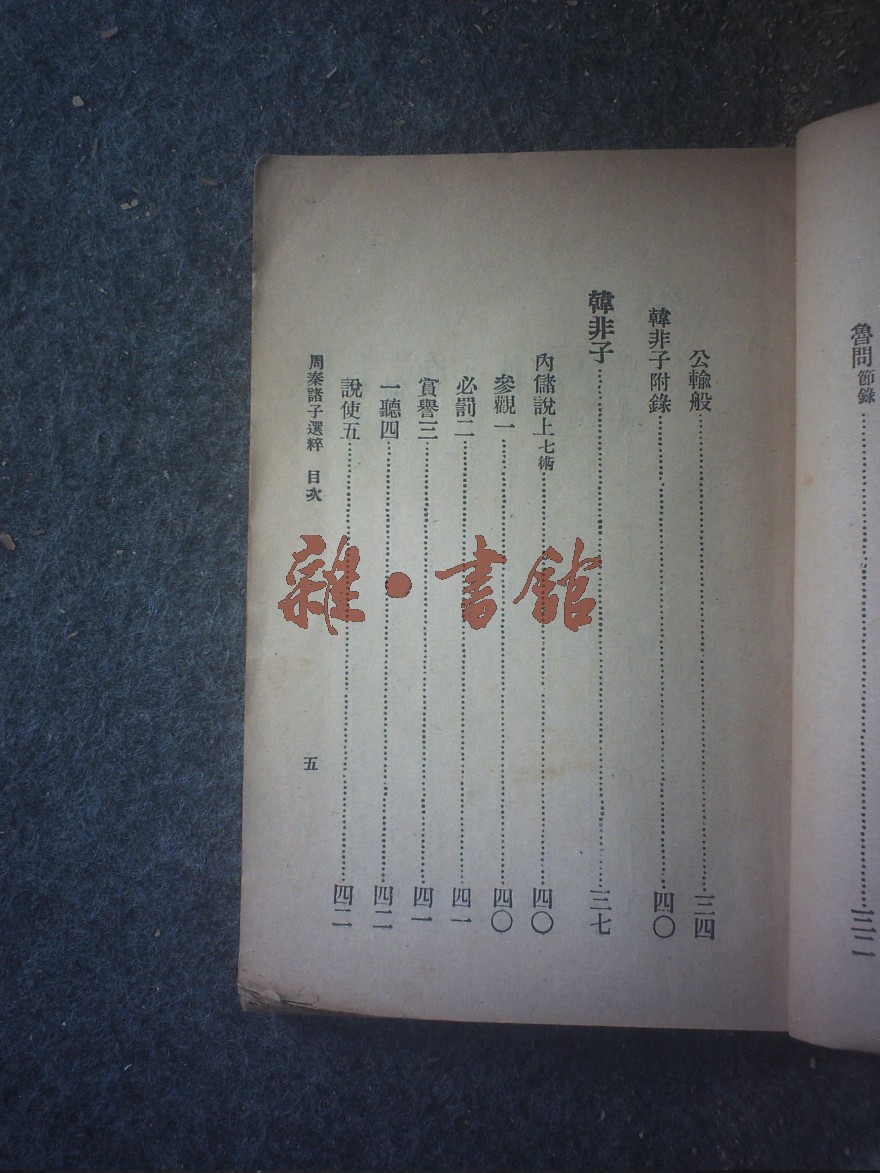 魯問節錄……三二
公輸般……三四
韓非子附錄……四〇
韓非子……三七
內儲說上七術……四〇
參觀一……四〇
必罰二……四一
賞譽三……四一
一聽四……四二
說使五……四二
周秦諸子選粹 目次 五
雜·書館